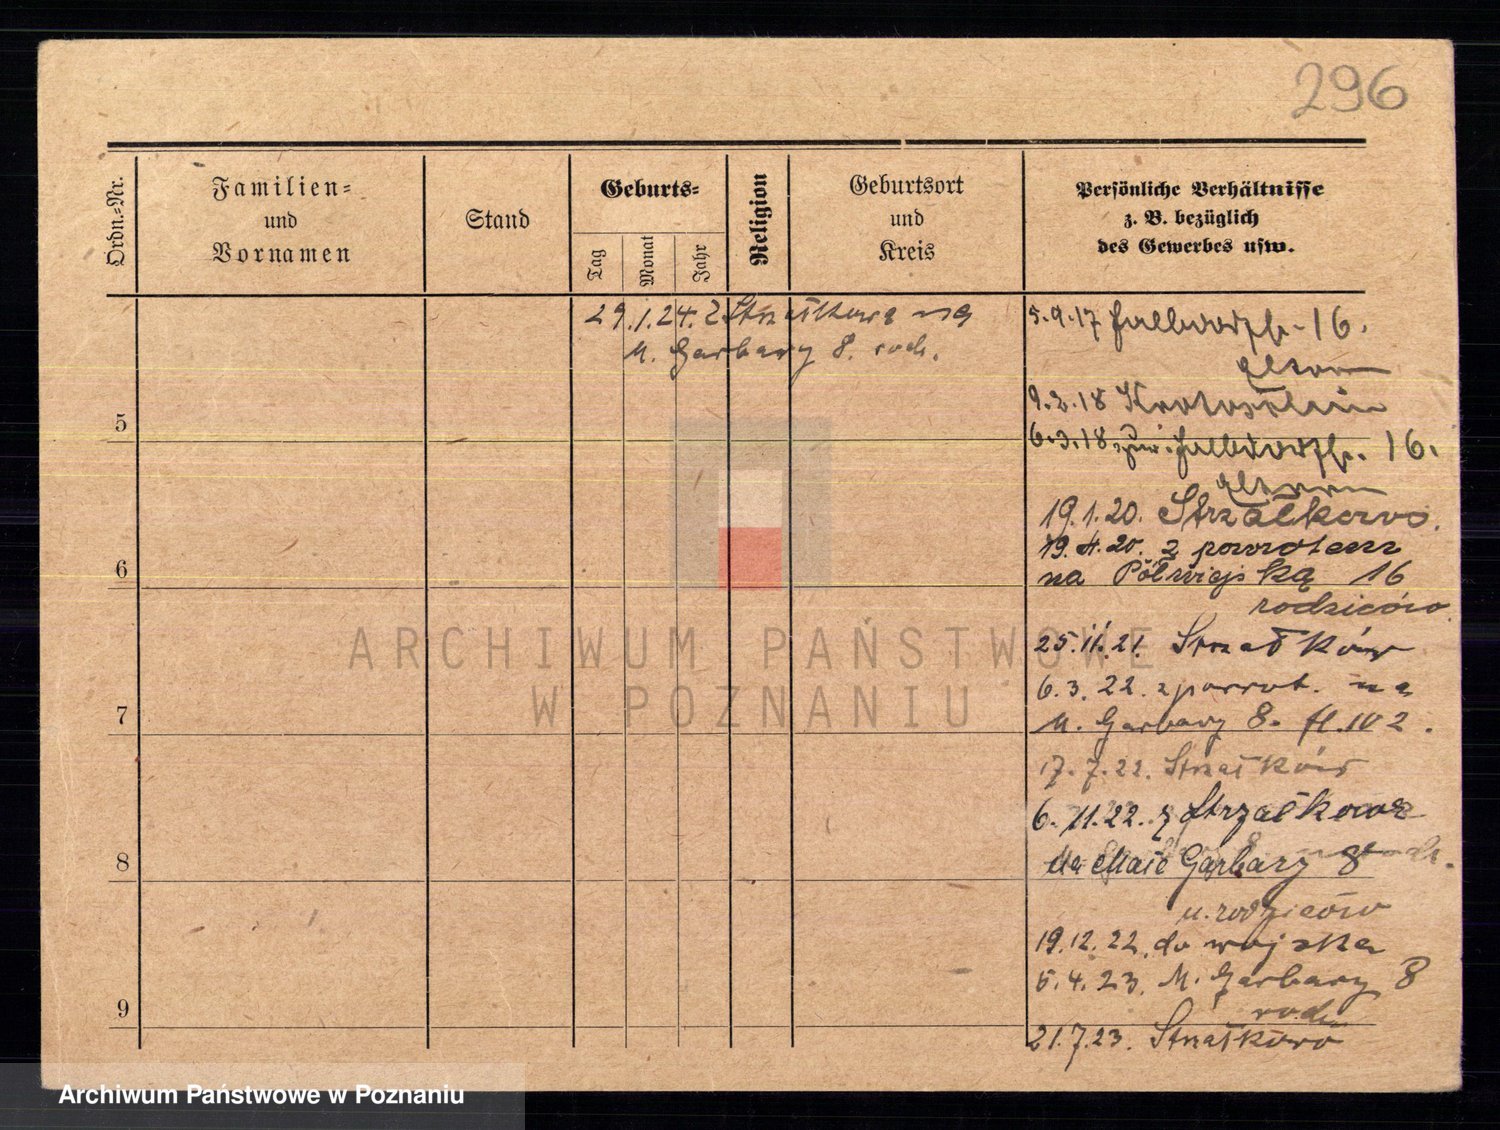 296
Ordn.=Nr.
Familien=
und
Vornamen
Stand
Geburts=
Tag
Monat
Jahr
Religion
Geburtsort
und
Kreis
Persönliche Verhältnisse
z. B. bezüglich
des Gewerbes usw.
29.1.24. z Strzałkowa na
M. Garbary 8. rodz.
5.9.17 Halbdorfstr. 16.
Eltern
9.2.18 Krotoschin
6.3.18 zur. Halbdorfstr. 16.
Eltern
19.1.20. Strzałkowo.
19.4.20. z powrotem
na Półwiejską 16
rodziców.
25.11.21. Strzałków
6.3.22. z powrot. na
M. Garbary 8. fl. IV 2.
17.7.22. Strzałków
6.11.22. z Strzałkowa
Na Małe Garbary 8
u. rodziców
19.12.22. do wojska
5.4.23. M. Garbary 8
rodz.
21.7.23. Strzałkowo
5
6
7
8
9
ARCHIWUM PAŃSTWOWE
W POZNANIU
Archiwum Państwowe w Poznaniu